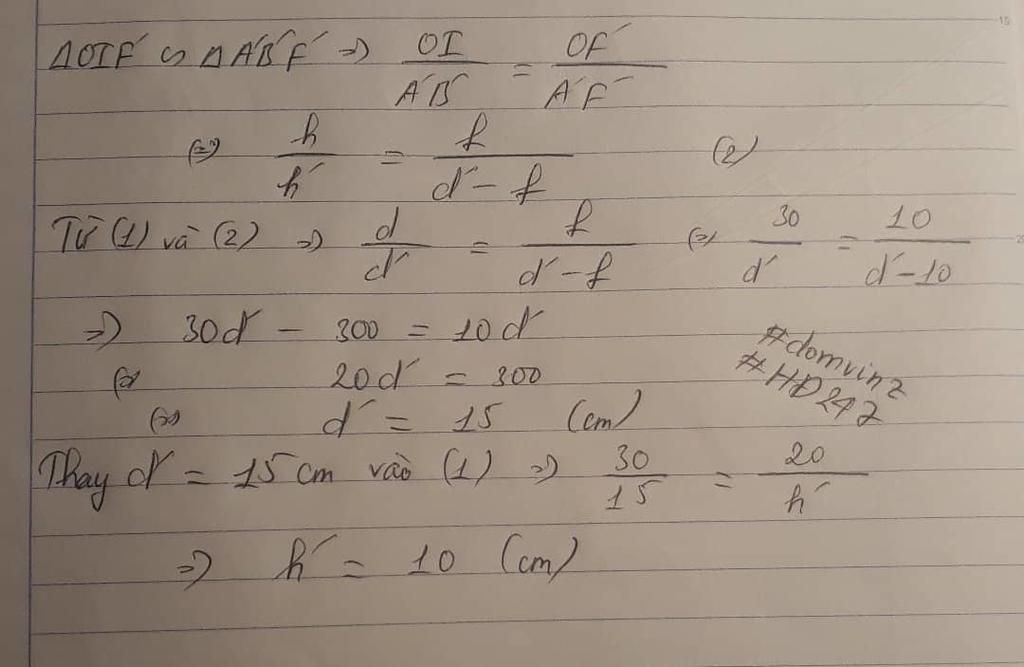 ΔOIF' ∽ ΔA'B'F' => OI/A'B' = OF'/A'F'
<=> h/h' = f/(d' - f) (2)
Từ (1) và (2) => d/d' = f/(d' - f) <=> 30/d' = 10/(d' - 10)
=> 30d' - 300 = 10d'
<=> 20d' = 300
<=> d' = 15 (cm)
#domvinz
#HĐ247
Thay d' = 15 cm vào (1) => 30/15 = 20/h'
=> h' = 10 (cm)